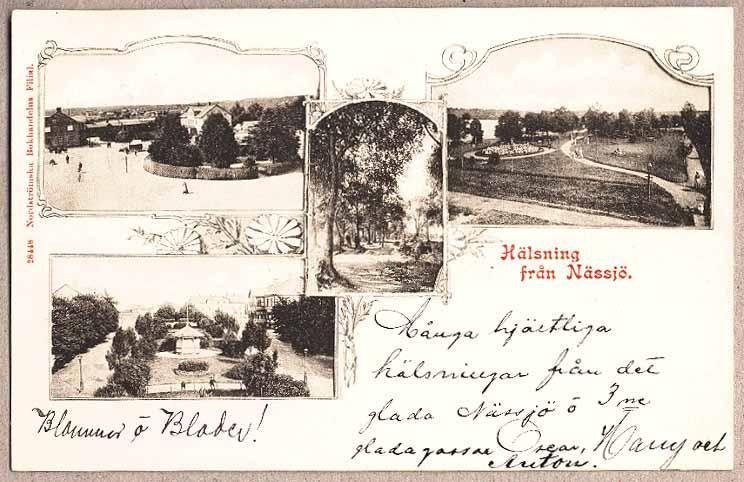 28448 Nordströmska Bokhandelns Filial.
Hälsning
från Nässjö.
Många hjärtliga
hälsningar från det
glada Nässjö ö 3 ne
glada gossar Oscar, Harry och
Anton.
Blommor ö Blader!